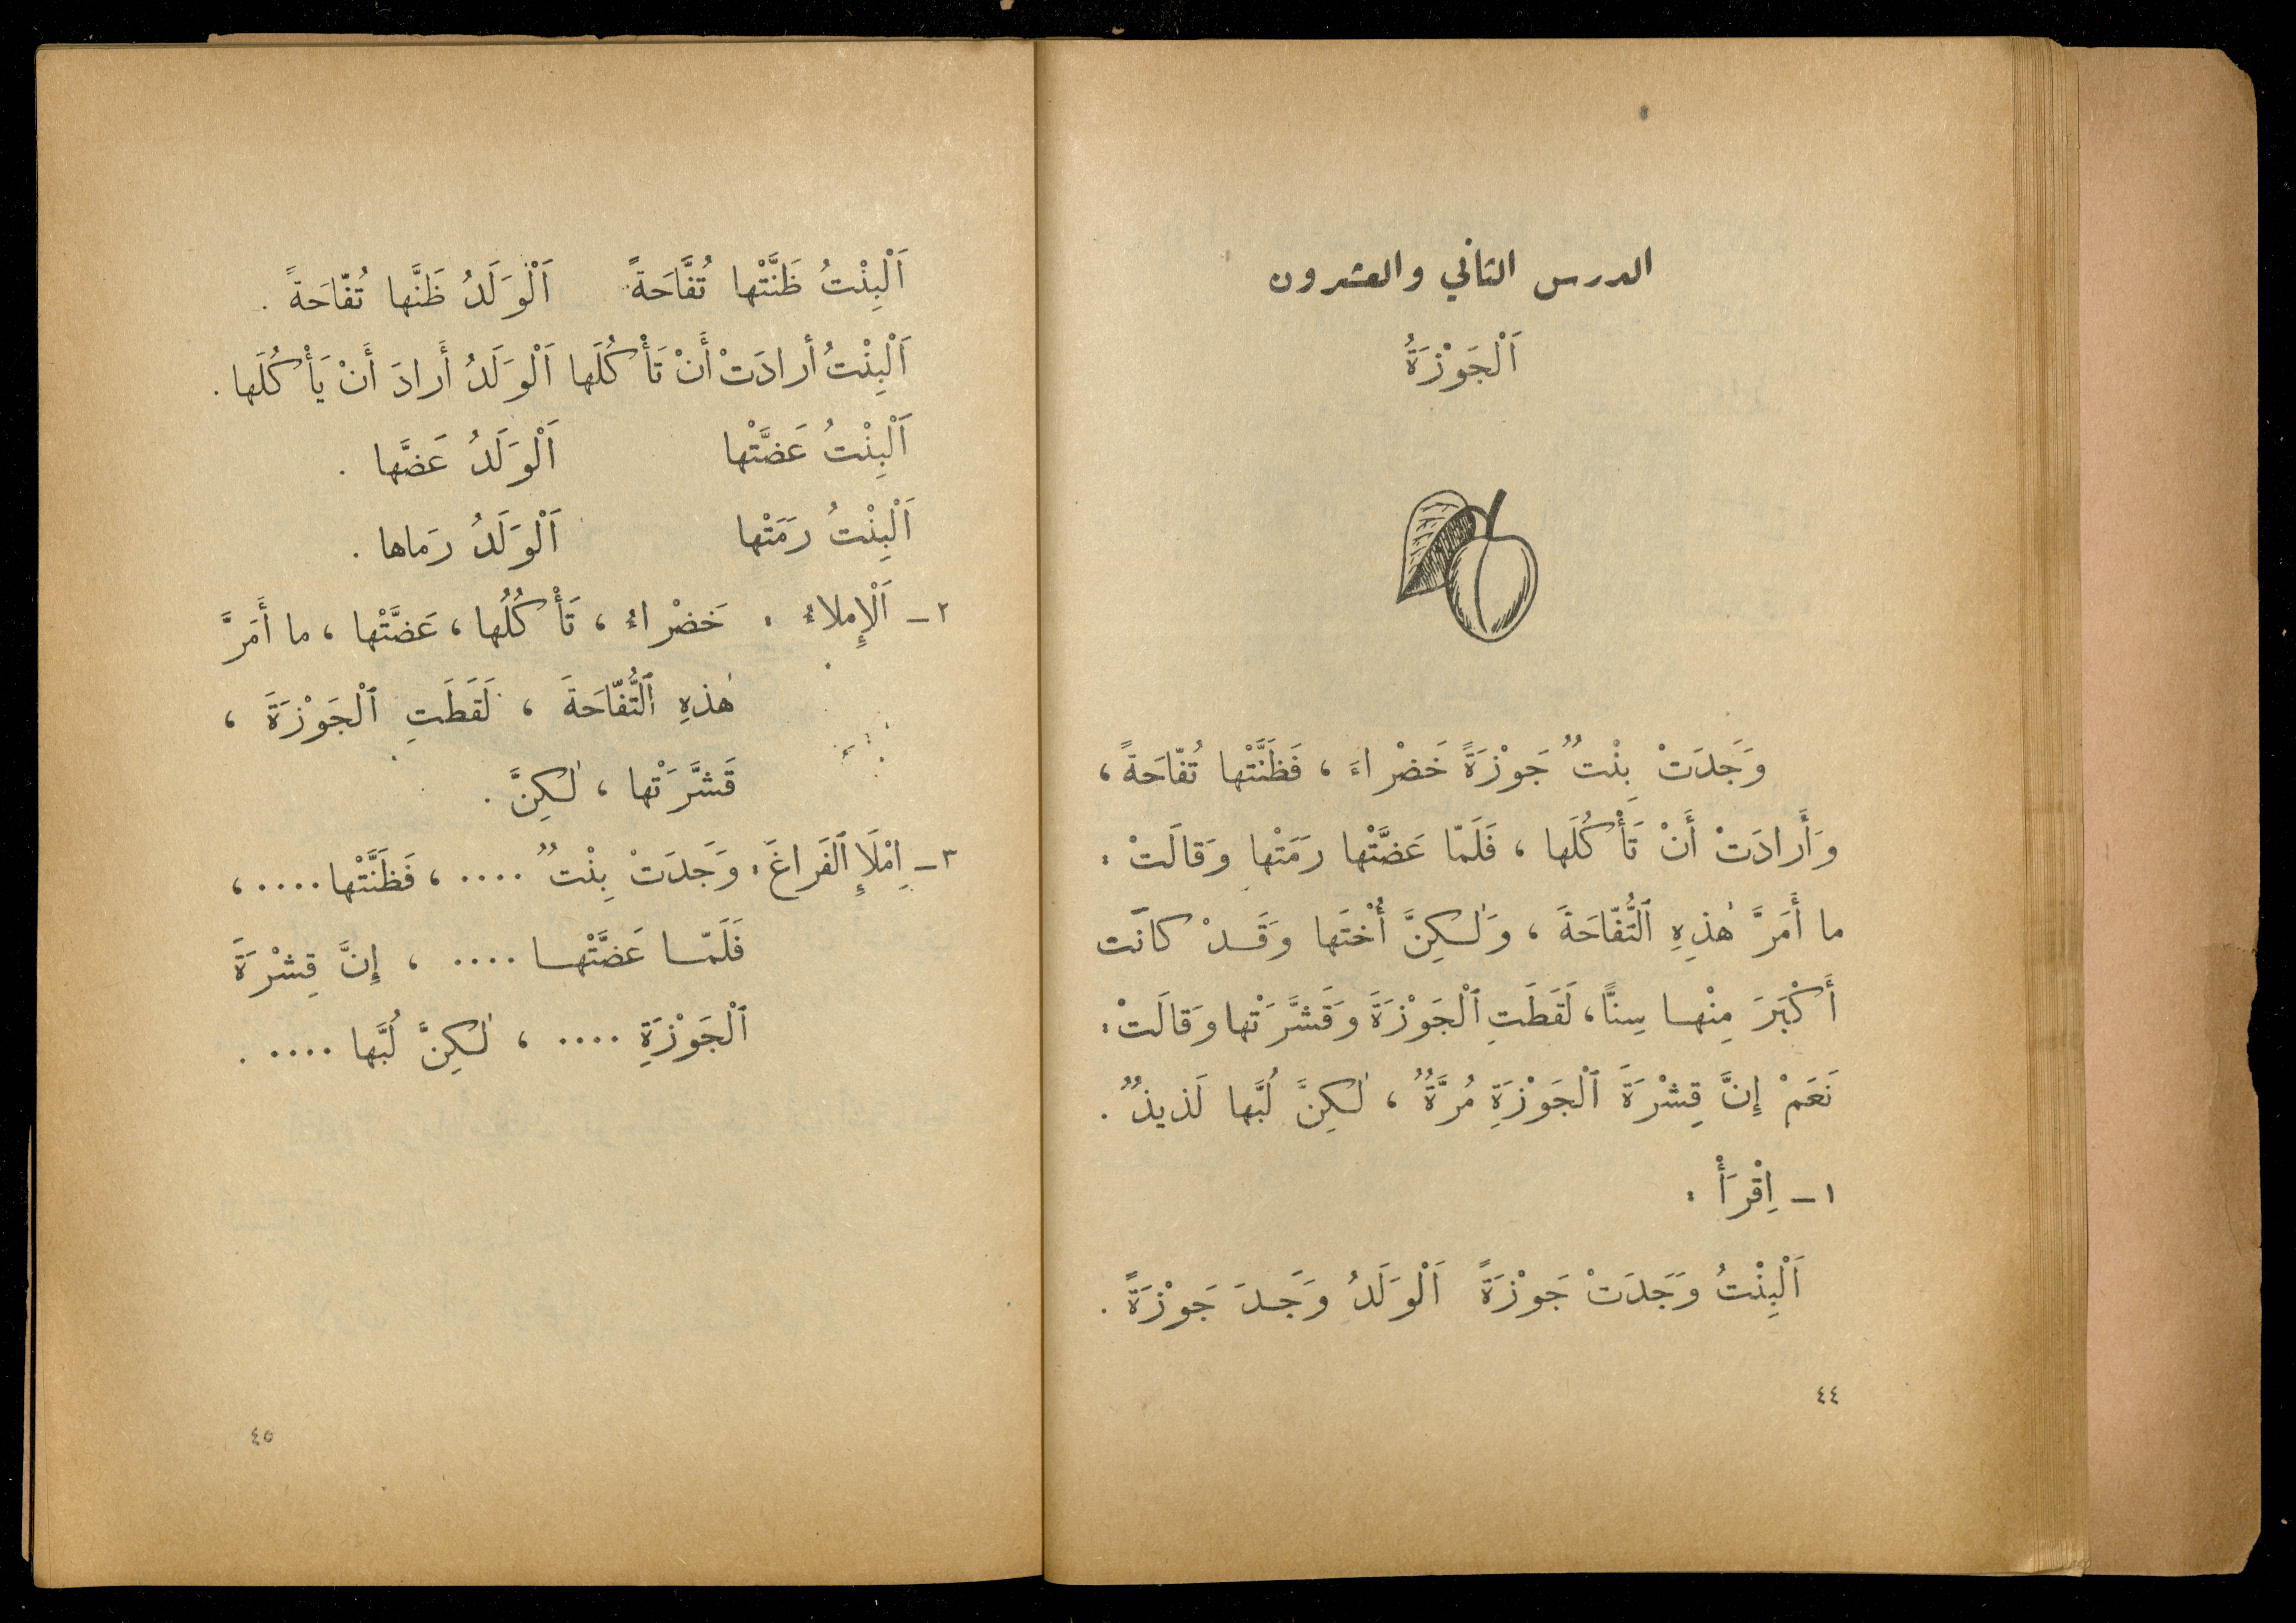 الدرس الثاني والعشرون
اَلْجَوْزَةُ
وَجَدَتْ بِنْتٌ جَوْزَةً خَضْراءَ ، فَظَنَّتْها تُفّاحَةً ،
وَأَرادَتْ أَنْ تَأْكُلَها ، فَلَمّا عَضَّتْها رَمَتْها وَقالَتْ :
ما أَمَرَّ هٰذِهِ ٱلتُّفّاحَةَ ، وَلٰكِنَّ أُخْتَها وَقَدْ كانَت
أَكْبَرَ مِنْها سِنًّا ، لَقَطَتِ ٱلْجَوْزَةَ وَقَشَّرَتْها وَقالَتْ :
نَعَمْ إِنَّ قِشْرَةَ ٱلْجَوْزَةِ مُرَّةٌ ، لٰكِنَّ لُبَّها لَذيذٌ .
١ – اِقْرَأْ :
اَلْبِنْتُ وَجَدَتْ جَوْزَةً اَلْوَلَدُ وَجَدَ جَوْزَةً .
٤٤
اَلْبِنْتُ ظَنَّتْها تُفّاحَةً اَلْوَلَدُ ظَنَّها تُفّاحَةً .
اَلْبِنْتُ أرادَتْ أَنْ تَأْكُلَها اَلْوَلَدُ أَرادَ أَنْ يَأْكُلَها .
اَلْبِنْتُ عَضَّتْها اَلْوَلَدُ عَضَّها .
اَلْبِنْتُ رَمَتْها اَلْوَلَدُ رَماها .
٢ – اَلْإِملاءُ : خَضْراءُ ، تَأْكُلُها ، عَضَّتْها ، ما أَمَرَّ
هٰذِهِ ٱلتُّفّاحَةَ ، لَقَطَتِ ٱلْجَوْزَةَ ،
قَشَّرَتْها ، لٰكِنَّ .
٣ – اِمْلَإِ ٱلفَراغَ : وَجَدَتْ بِنْتٌ .... ، فَظَنَّتْها .... ،
فَلَمّا عَضَّتْها .... ، إِنَّ قِشْرَةَ
ٱلْجَوْزَةِ .... ، لٰكِنَّ لُبَّها .... .
٤٥